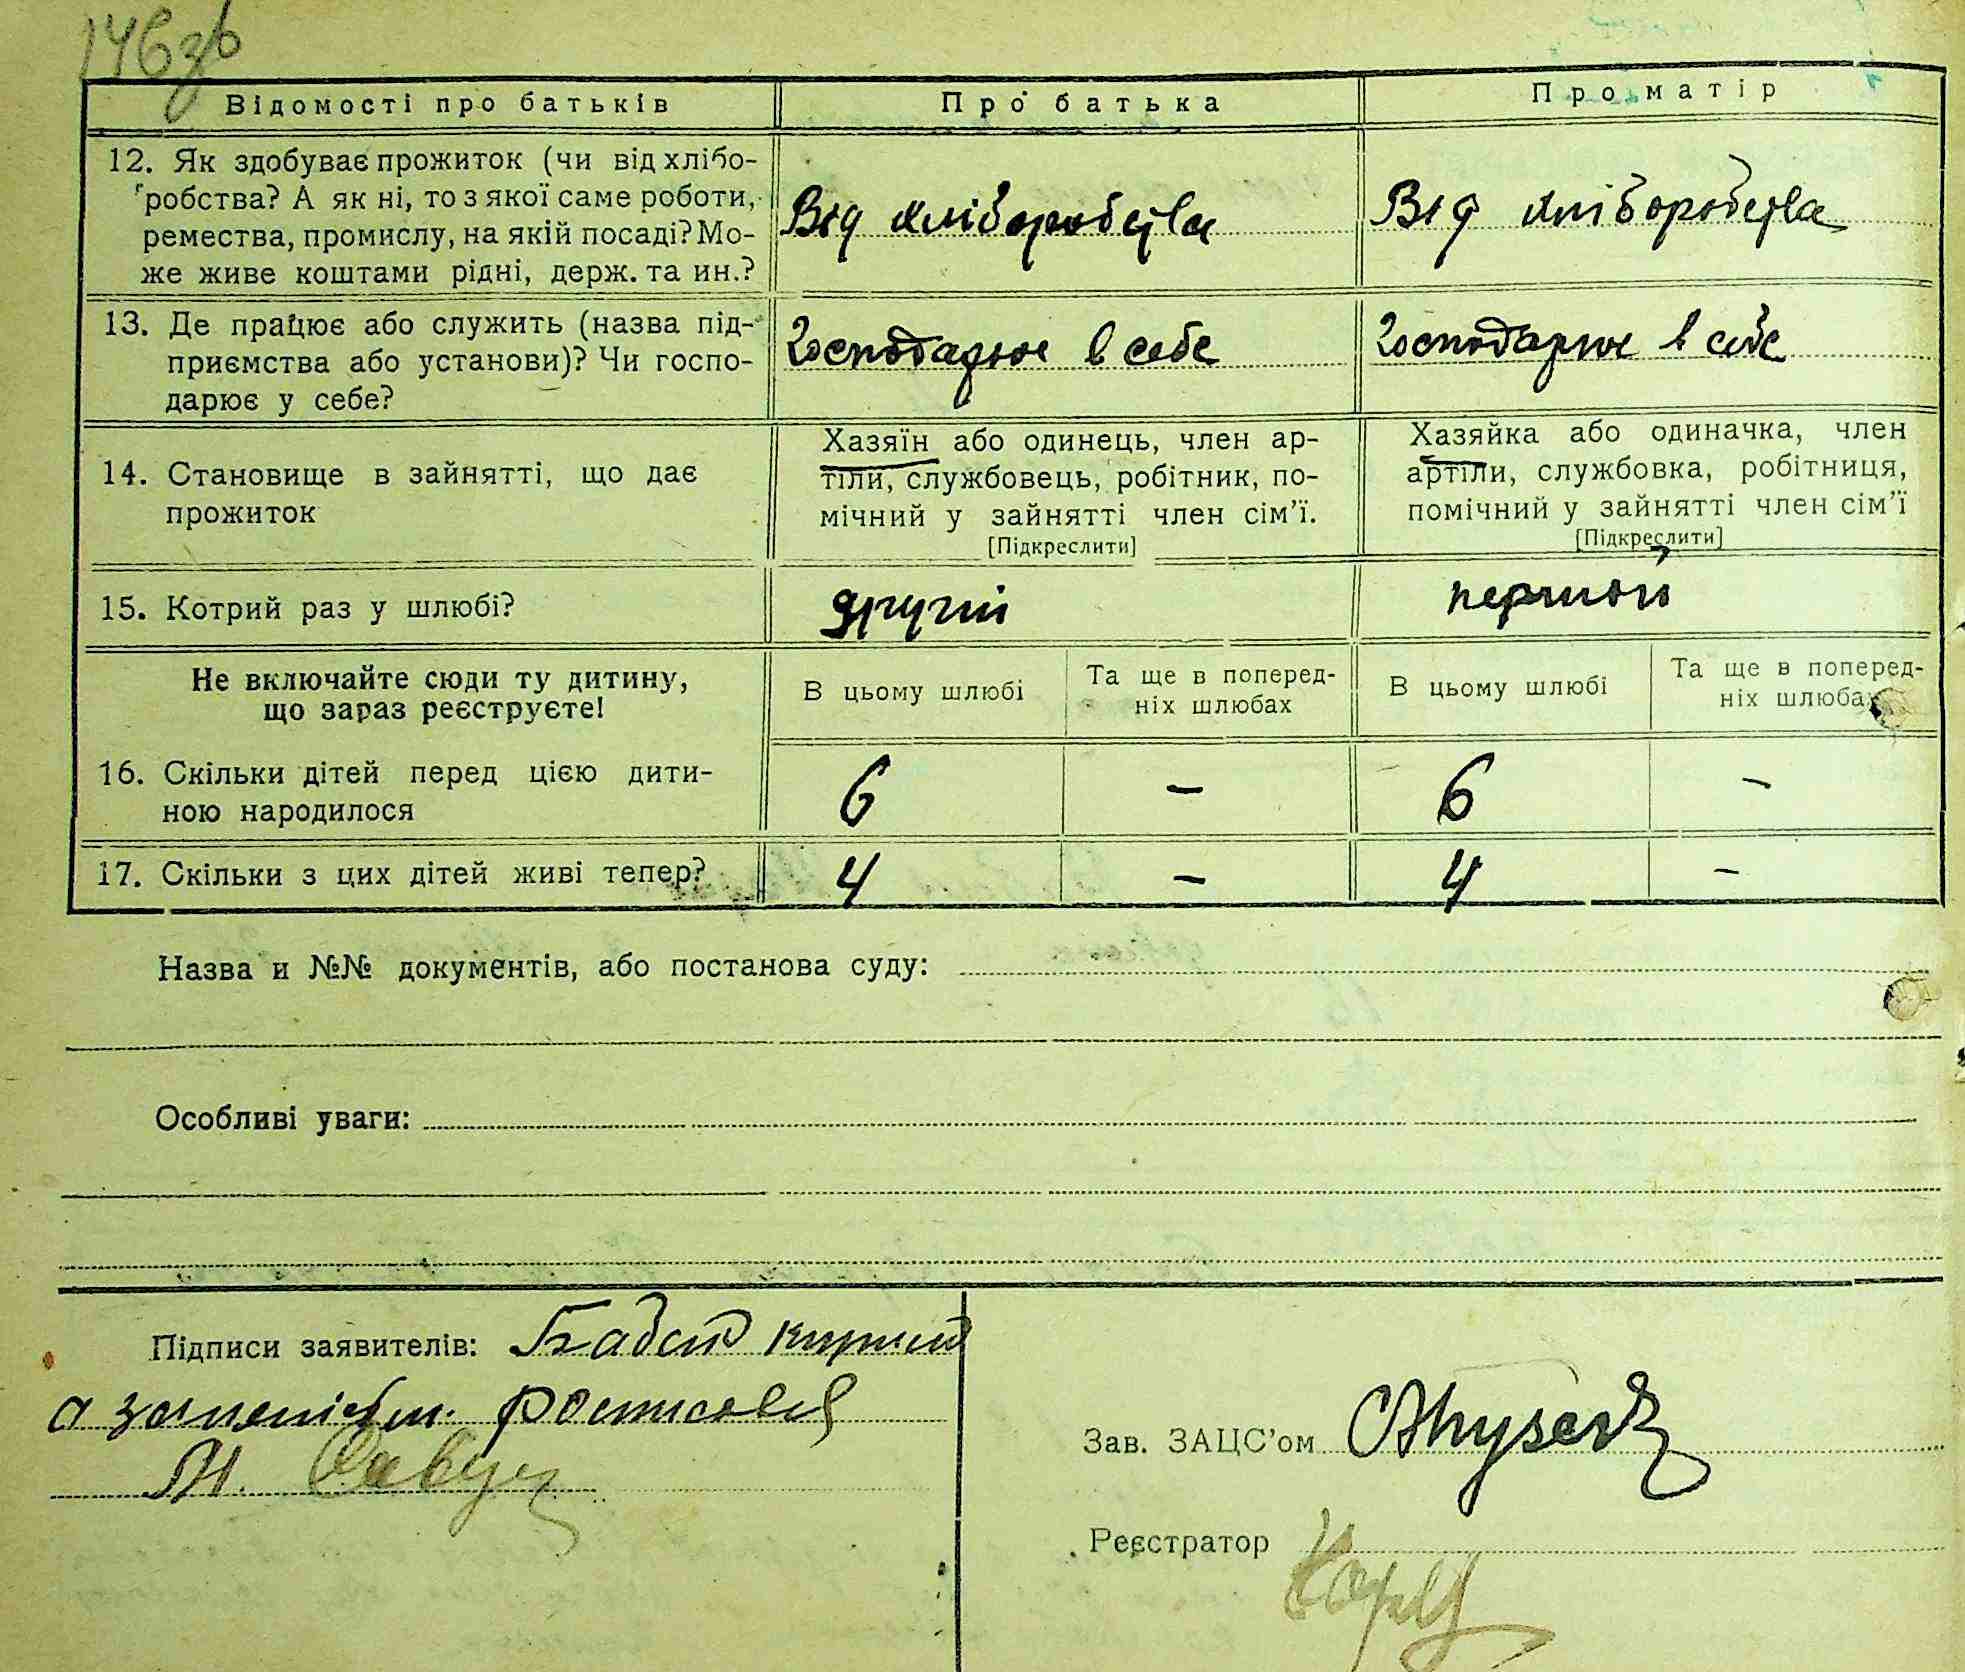 146зв
Відомості про батьків
Про батька
Про матір
12. Як здобуває прожиток (чи від хлібо-
робства? А як ні, то з якої саме роботи,
ремества, промислу, на якій посаді? Мо-
же живе коштами рідні, держ. та ин.?
Від хліборобства
Від хліборобства
13. Де працює або служить (назва під-
приємства або установи)? Чи госпо-
дарює у себе?
Господарює в себе
Господарює в себе
14. Становище в зайнятті, що дає
прожиток
Хазяїн або одинець, член ар-
тіли, службовець, робітник, по-
мічний у зайнятті член сім'ї.
[Підкреслити]
Хазяйка або одиначка, член
артіли, службовка, робітниця,
помічний у зайнятті член сім'ї
[Підкреслити]
15. Котрий раз у шлюбі?
другий
першой
Не включайте сюди ту дитину,
що зараз реєструєте!
В цьому шлюбі
Та ще в поперед-
ніх шлюбах
В цьому шлюбі
Та ще в поперед-
ніх шлюбах
16. Скільки дітей перед цією дити-
ною народилося
6 - 6 -
17. Скільки з цих дітей живі тепер?
4 - 4 -
Назва и №№ документів, або постанова суду:
Особливі уваги:
Підписи заявителів:
а за
Зав. ЗАЦС'ом
Реєстратор